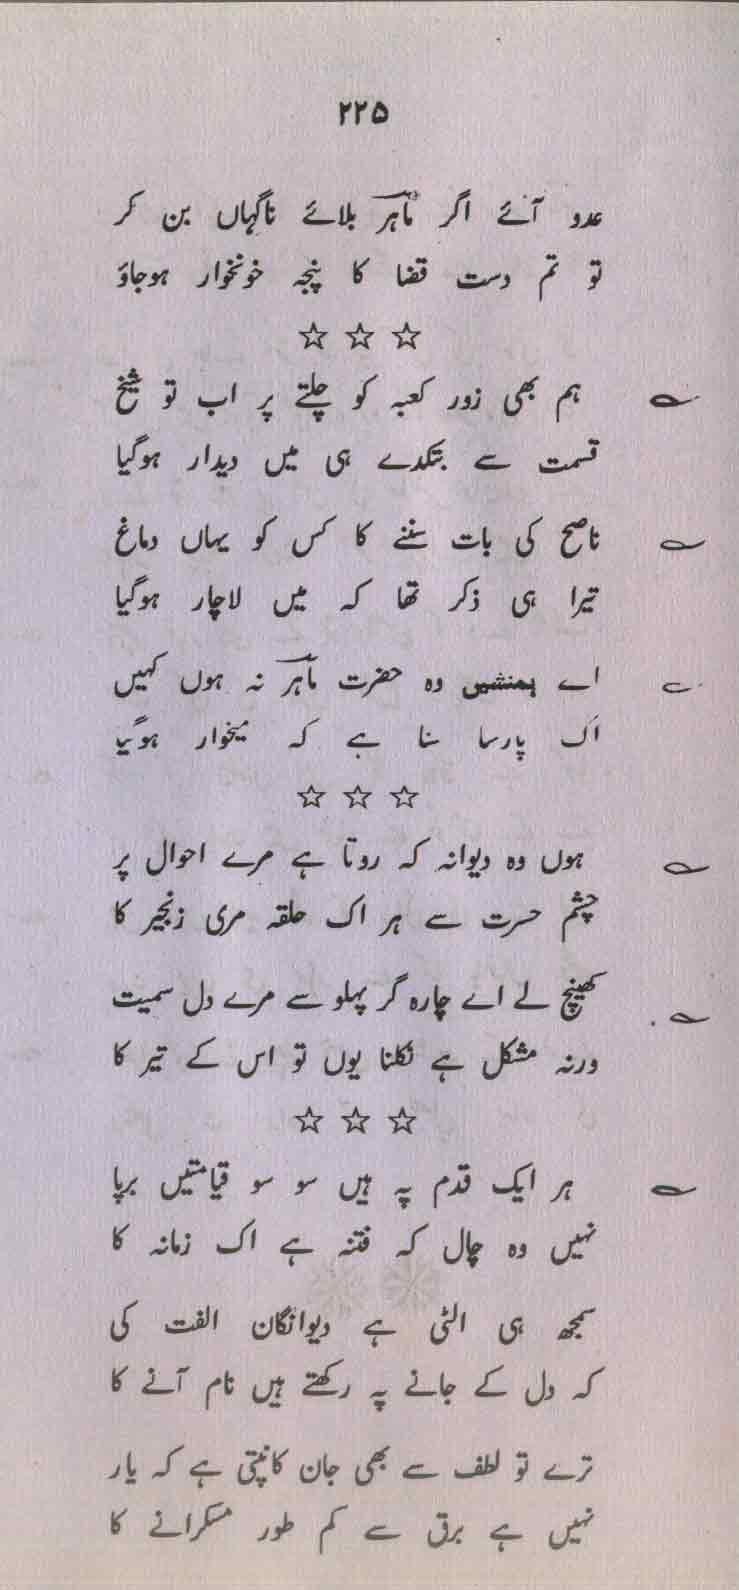 ۲۲۵
عدو آئے اگر ماہر بلائے ناگہاں بن کر
تو تم دست قضا کا پنجہ خونخوار ہوجاؤ
☆ ☆ ☆
ہم بھی زور کعبہ کو چلتے پر اب تو شیخ
قسمت سے بتکدے ہی میں دیدار ہوگیا
ناصح کی بات سننے کا کس کو یہاں دماغ
تیرا ہی ذکر تھا کہ میں لاچار ہوگیا
اے ہمنشیں وہ حضرت ماہر نہ ہوں کہیں
اک پارسا سنا ہے کہ میخوار ہوگیا
☆ ☆ ☆
ہوں وہ دیوانہ کہ روتا ہے مرے احوال پر
چشم حسرت سے ہر اک حلقہ مری زنجیر کا
کھینچ لے اے چارہ گر پہلو سے مرے دل سمیت
ورنہ مشکل ہے نکلنا یوں تو اس کے تیر کا
☆ ☆ ☆
ہر ایک قدم پہ ہیں سو سو قیامتیں برپا
نہیں وہ چال کہ فتنہ ہے اک زمانہ کا
سمجھ ہی الٹی ہے دیوانگان الفت کی
کہ دل کے جانے پہ رکھتے ہیں نام آنے کا
ترے تو لطف سے بھی جان کانپتی ہے کہ یار
نہیں ہے برق سے کم طور مسکرانے کا